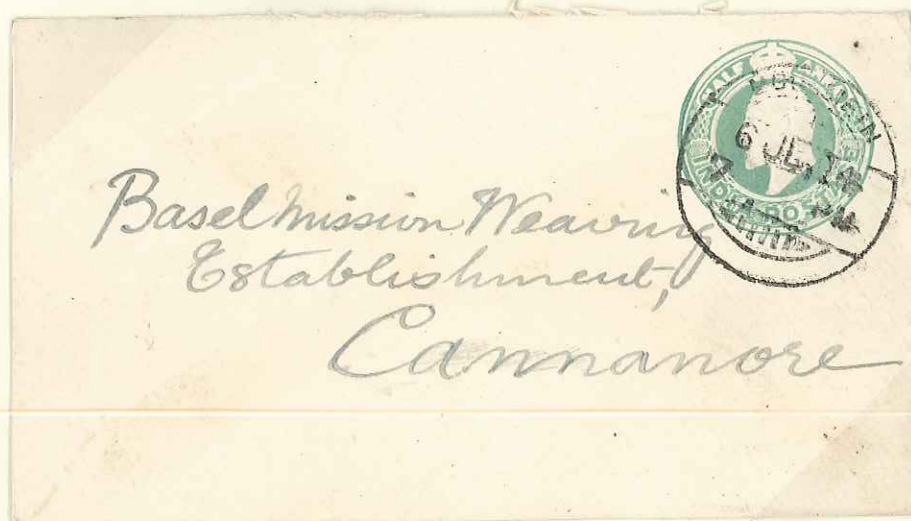 HALF ANNA
INDIA POSTAGE
Basel Mission Weaving
Establishment,
Cannanore